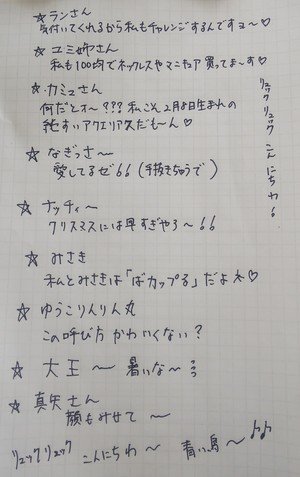 ☆ ランさん
気付いてくれるから私もチャレンジするんですヨ〜♡
☆ ユミ姉さん
私も100均でネックレスやマニキュア買ってま〜す♡
☆ カミュさん
何だとオ〜??? 私こそ2月8日生まれの
純すいアクエリアスだも〜ん♡
☆ なぎっさ〜
愛してるゼ!! (手抜きちゅうで)
☆ ナッティ〜
クリスマスには早すぎやろ〜!!
☆ みさき
私とみさきは「ばカップる」だよネ♡
☆ ゆうこりんりん丸
この呼び方かわいくない?
☆ 大王〜 暑いな〜
☆ 真矢さん
顔もみせて〜
リュックリュック こんにちわ〜 青い鳥〜♪♪
リュックリュック こんにちわ!